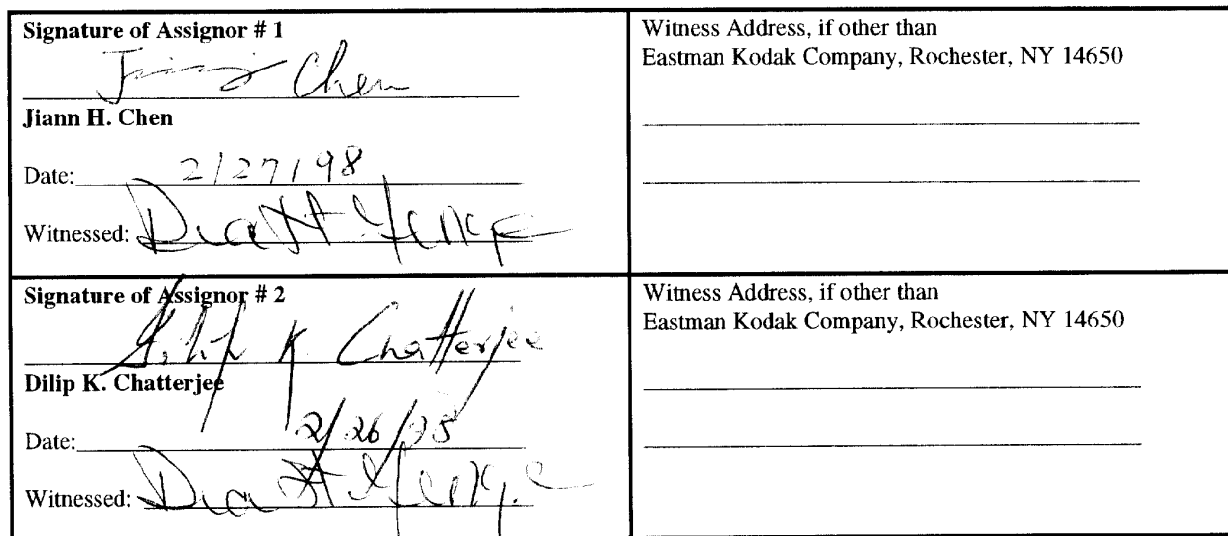 Signature of Assignor # 1
Chen
Jiann H. Chen
Date: 2/27/98
Witnessed:
Witness Address, if other than
Eastman Kodak Company, Rochester, NY 14650
Signature of Assignor # 2
K. Chatterjee
Dilip K. Chatterjee
Date: 2/26/98
Witnessed:
Witness Address, if other than
Eastman Kodak Company, Rochester, NY 14650